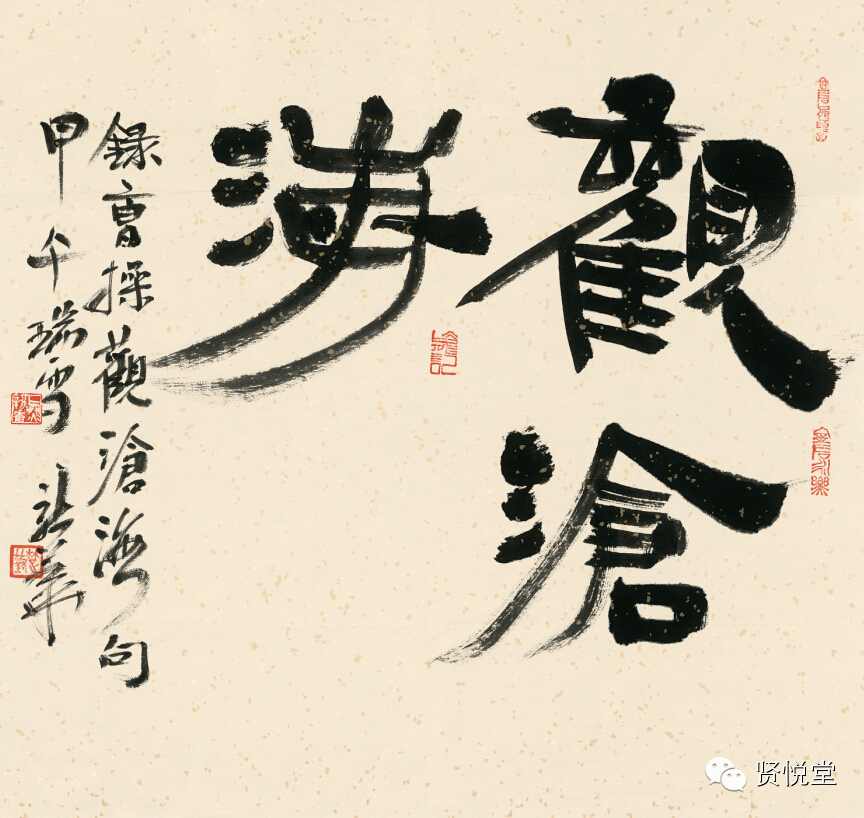 觀滄
海
錄曹操觀滄海句
甲午瑞雪
贤悦堂